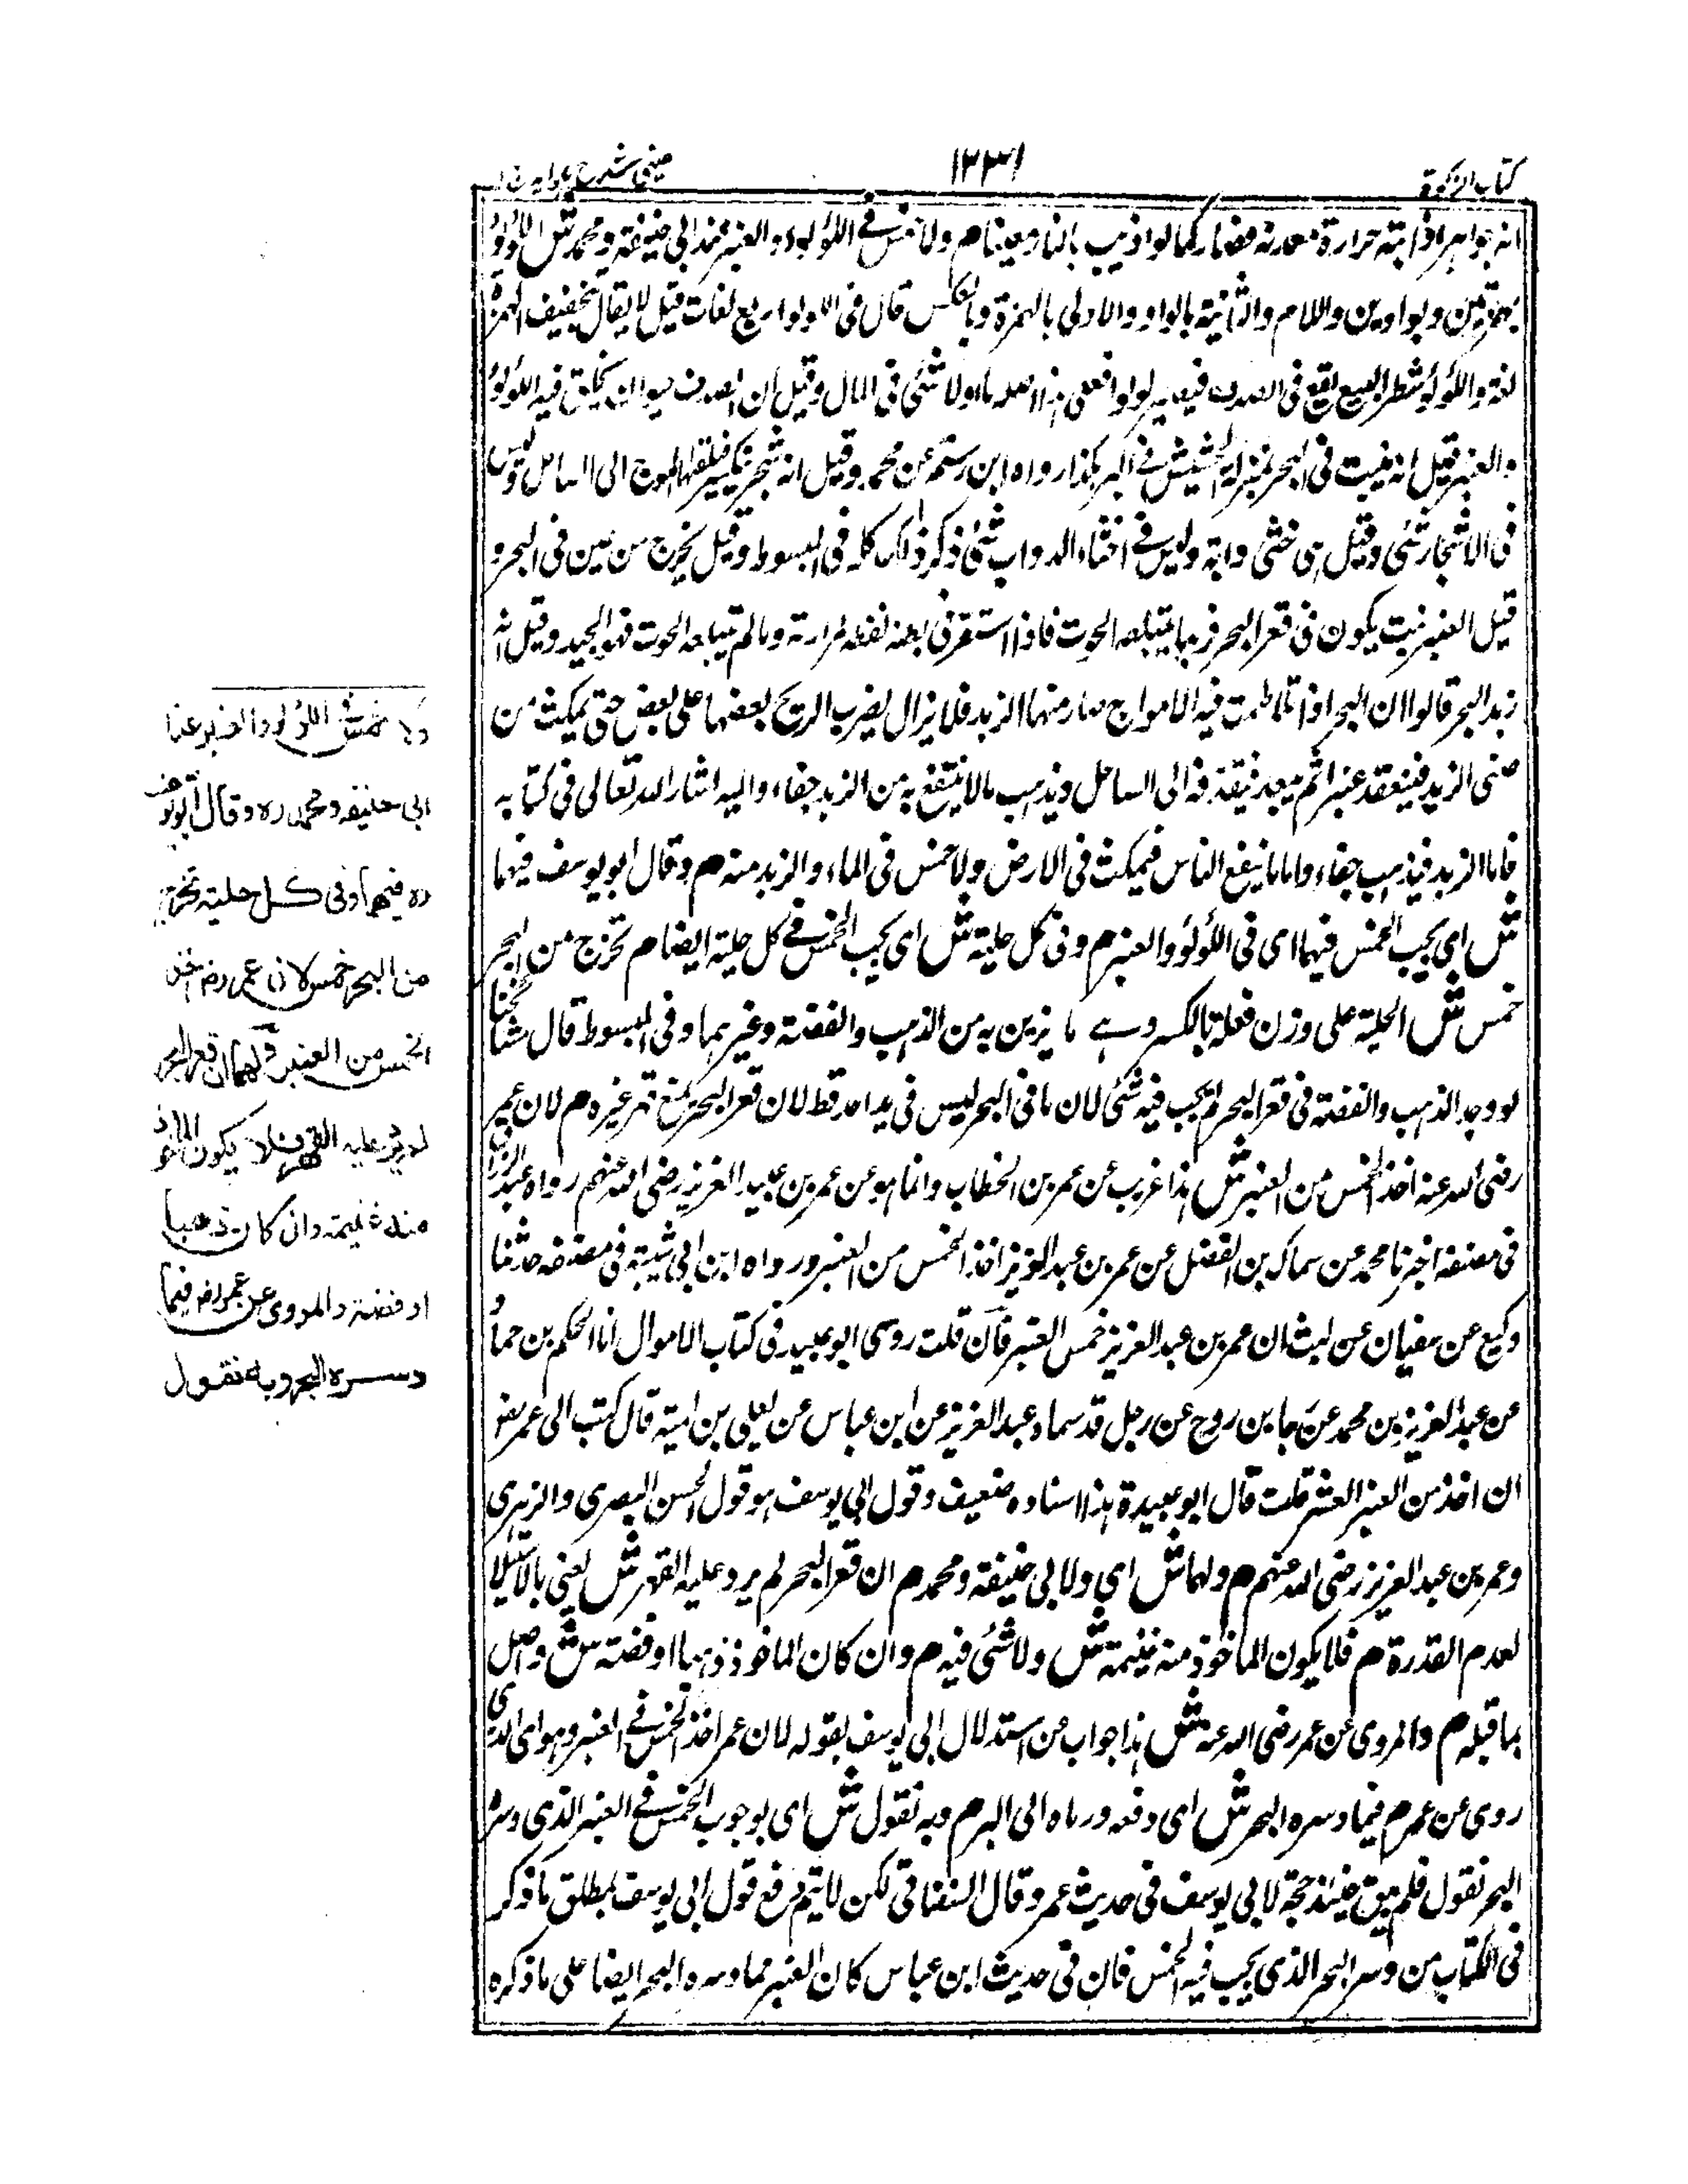 كتاب الزكوة
١٢٣١
عينى شرح هدايه
انه جواهر اذابته حرارة معدنه فصار كما لو اذيب بالنار معينا م ولا خمس فى اللؤلؤ والعنبر عند ابى حنيفة ومحمد ش اللؤلؤ
بهمزتين وبواوين واللام والثانية بالواو والاولى بالهمزة وبالعكس قال فى اللولو اربع لغات قيل لا يقال تخفيف الهمزة
لغة واللؤلؤ مطر الربيع يقع فى الصدف فيصير لولوا فعلى هذا اصله ماء ولا شئ فى المال وقيل ان الصدف حيوان يخلق فيه اللؤلؤ
والعنبر قيل انه ينبت فى البحر بمنزلة الحشيش فى البر كذا رواه ابن رستم عن محمد وقيل انه شجر يتكسر فيلقيها الموج الى الساحل وليس
فى الاشجار شئ وقيل هى خثى دابة وليس فى اخثاء الدواب شئ ذكر ذلك كله فى المبسوط وقيل يخرج من عين فى البحر و
قيل العنبر نبت يكون فى قعر البحر فربما يبتلعه الحوت فاذا استقر فى بطنه لفظه لمرارته وما لم يبتلعه الحوت فهو الجيد وقيل انه
زبد البحر قالوا ان البحر اذا تلاطمت فيه الامواج صار منها الزبد فلا يزال يضرب الريح بعضها على بعض حتى يمكث من
صفى الزبد فينعقد عنبرا ثم يبعد فيقذفه الى الساحل ويذهب مالا ينتفع به من الزبد جفاء واليه اشار الله تعالى فى كتابه
فاما الزبد فيذهب جفاء واما ما ينفع الناس فيمكث فى الارض ولا خمس فى الماء والزبد منه م وقال ابو يوسف فيهما
ش اى يجب الخمس فيهما اى فى اللؤلؤ والعنبر م وفى كل حلية ش اى يجب الخمس فى كل حلية ايضا م تخرج من البحر
خمس ش الحلية على وزن فعلة بالكسر وهى ما يزين به من الذهب والفضة وغيرهما وفى المبسوط قال مشائخنا
لو وجد الذهب والفضة فى قعر البحر لم يجب فيه شئ لان ما فى البحر ليس فى يد احد قط لان قعر البحر يمنع قهر غيره م لان عمر
رضى الله عنه اخذ الخمس من العنبر ش هذا غريب عن عمر بن الخطاب وانما هو عن عمر بن عبد العزيز رضى الله عنهم رواه عبد الرزاق
فى مصنفه اخبرنا محمد عن سماك بن الفضل عن عمر بن عبد العزيز اخذ الخمس من العنبر ورواه ابن ابى شيبة فى مصنفه حدثنا
وكيع عن سفيان عن ليث ان عمر بن عبد العزيز خمس العنبر فان قلت روى ابو عبيد فى كتاب الاموال انا الحكم بن حماد
عن عبد العزيز بن محمد عن جابن روح عن رجل قد سماه عبد العزيز عن ابن عباس عن يعلى بن امية قال كتب الى عمر رضه
ان اخذ من العنبر العشر قلت قال ابو عبيدة هذا اسناده ضعيف وقول ابى يوسف هو قول الحسن البصرى والزهرى
وعمر بن عبد العزيز رضى الله عنهم م ولهما ش اى ولابى حنيفة ومحمد م ان قعر البحر لم يرد عليه القهر ش يعنى بالاستيلاء
لعدم القدرة م فلا يكون الماخوذ منه غنيمة ش ولا شئ فيه م وان كان الماخوذ ذهبا او فضة ش وصل
بما قبله م والمروى عن عمر رضى الله عنه ش هذا جواب عن استدلال ابى يوسف بقوله لان عمر اخذ الخمس فى العنبر وهو اى الذى
روى عن عمر م فيما دسره البحر ش اى دفعه ورماه الى البر م وبه نقول ش اى بوجوب الخمس فى العنبر الذى دسره
البحر نقول فلم يبق حينئذ حجة لابى يوسف فى حديث عمر وقال السغناقى لكن لا يتم دفع قول ابى يوسف بمطلق ما ذكر
فى الكتاب من دسر البحر الذى يجب فيه الخمس فان فى حديث ابن عباس كان العنبر مما دسره البحر ايضا على ما ذكره
ولا خمس فى اللؤلؤ والعنبر عند
ابى حنيفة ومحمد ره وقال ابو يوسف
ره فيهما وفى كل حلية تخرج
من البحر خمس لان عمر رض اخذ
الخمس من العنبر ولهما ان قعر البحر
لم يرد عليه القهر فلا يكون الماخوذ
منه غنيمة وان كان ذهبا
او فضة والمروى عن عمر رض فيما
دسره البحر وبه نقول